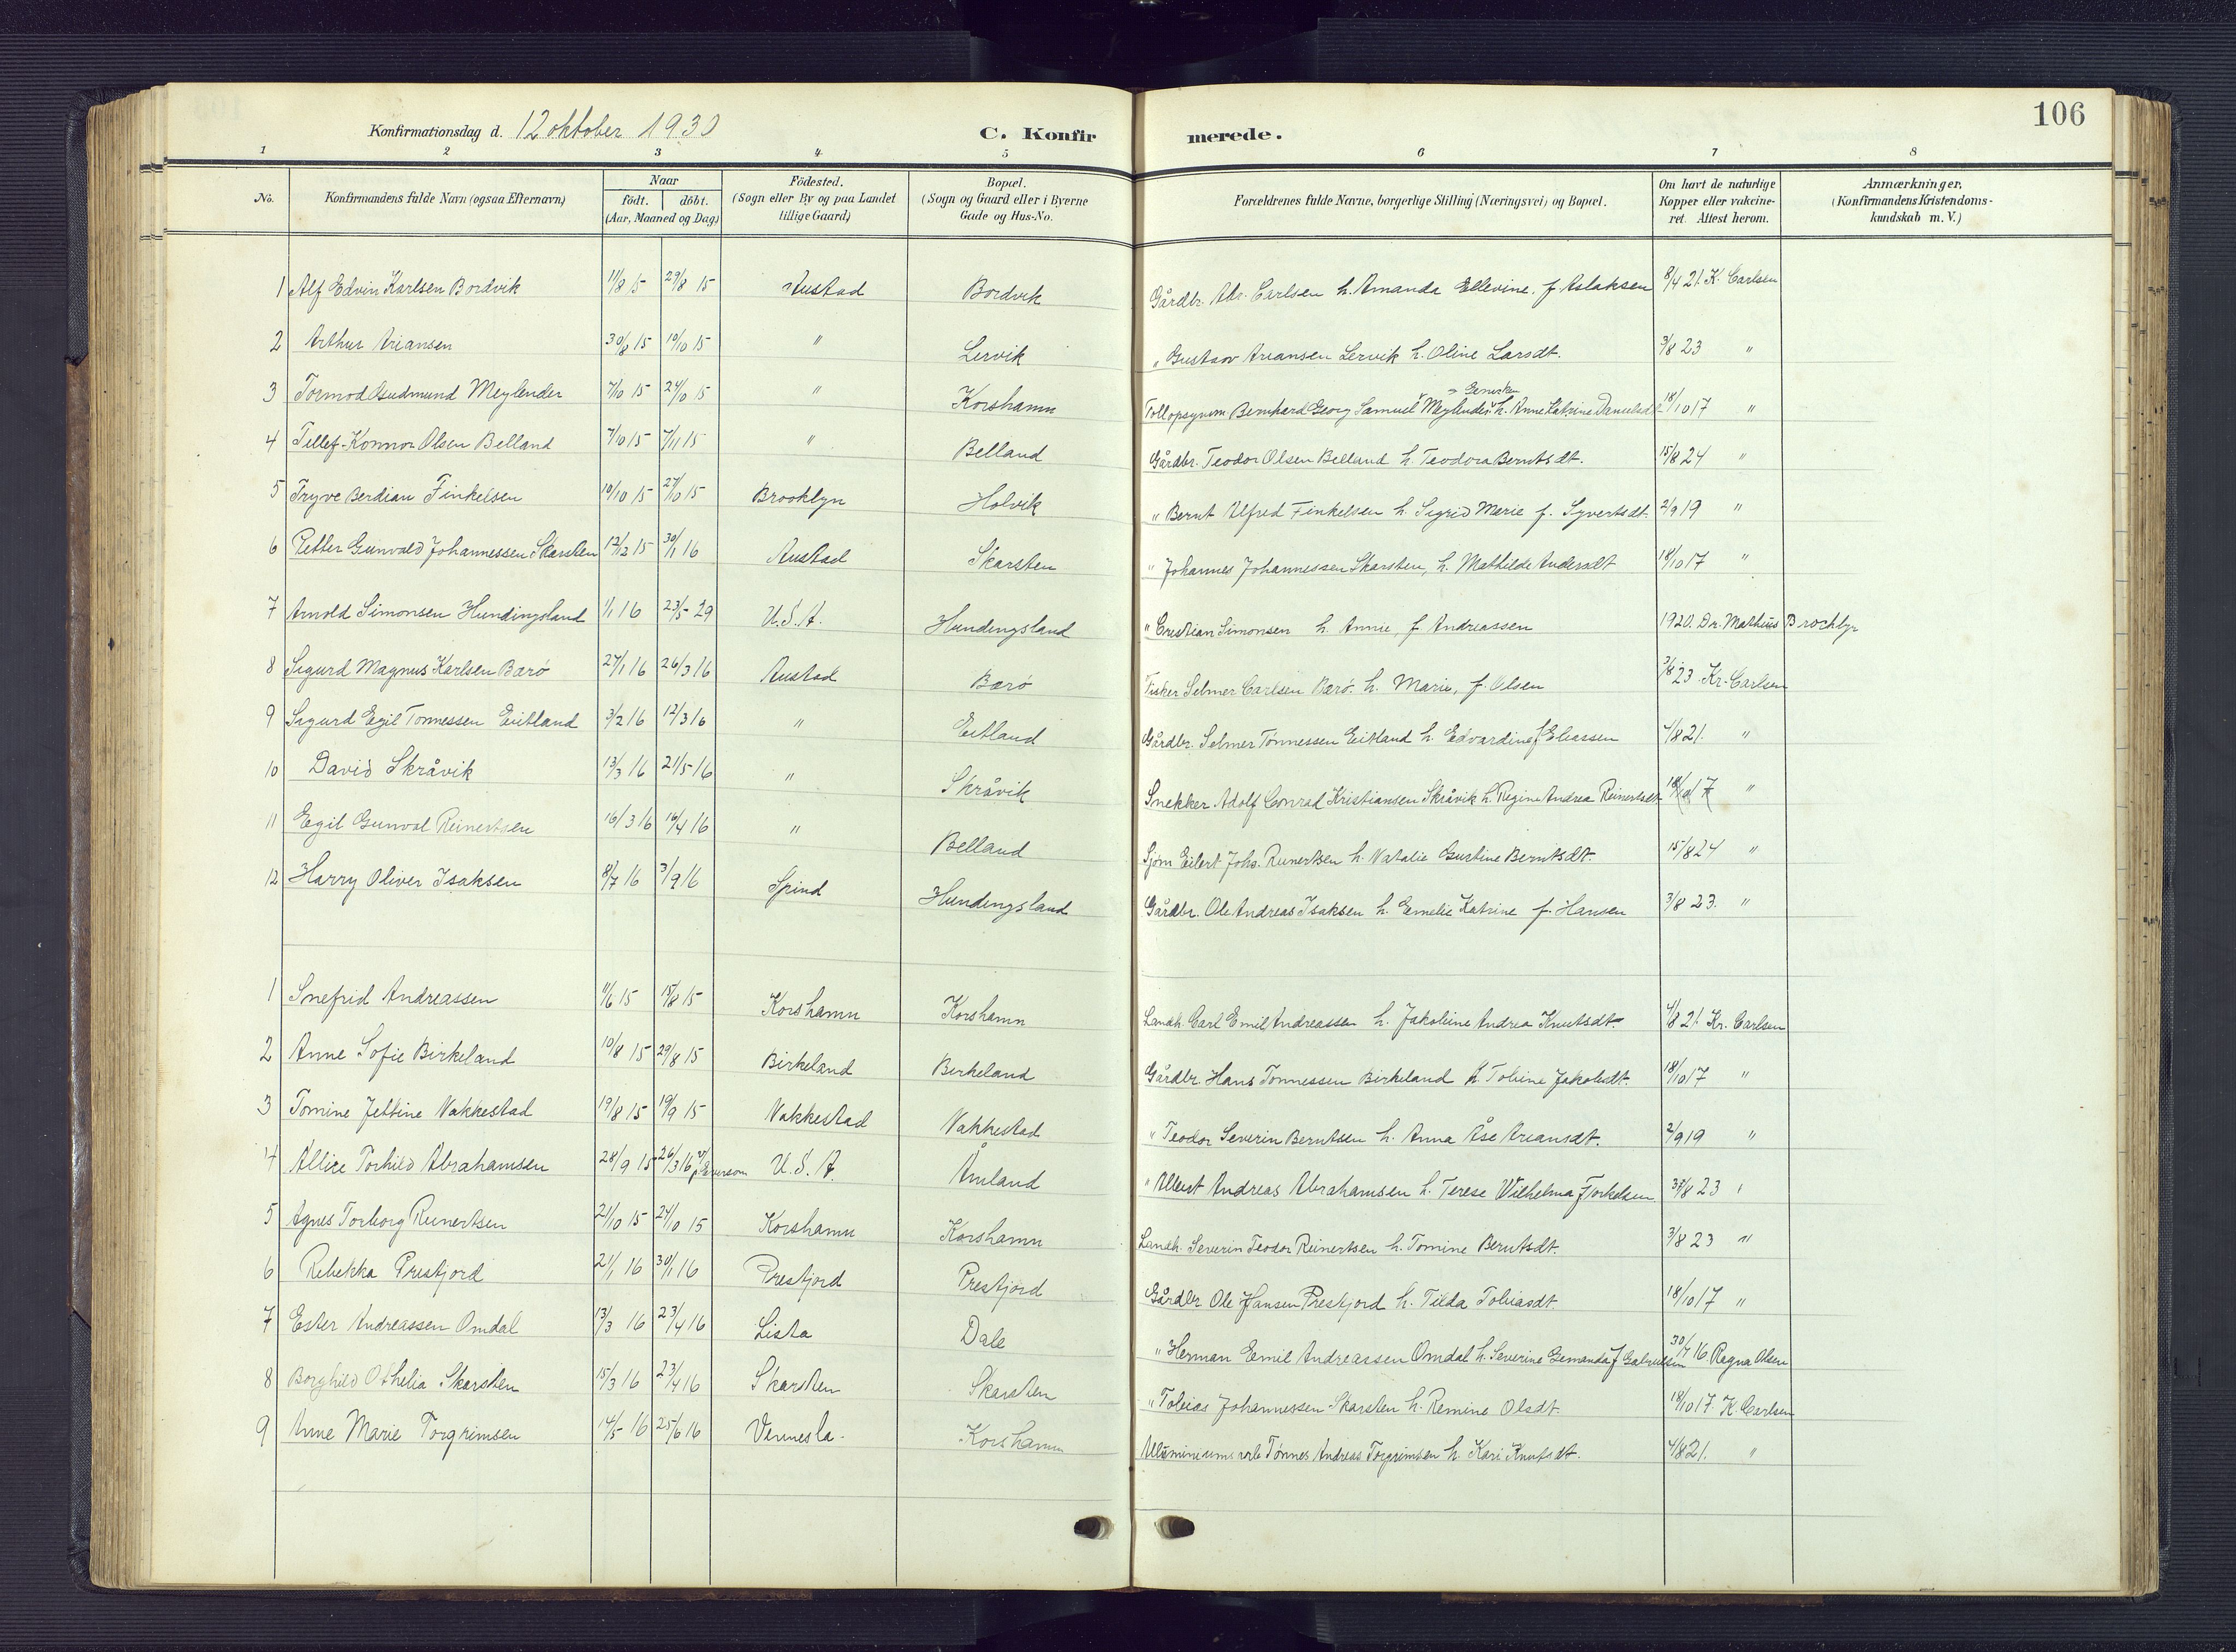 106
Konfirmationsdag d. 12 oktober 1930 C. Konfirmerede.
1 2 3 4 5 6 7 8
No. Konfirmandens fulde Navn (ogsaa Efternavn) Naar födt. döbt. (Aar, Maaned og Dag) Födested. (Sogn eller By og paa Landet tillige Gaard) Bopæl. (Sogn og Gaard eller i Byerne Gade og Hus-No. Forældrenes fulde Navne, borgerlige Stilling (Næringsvei) og Bopæl. Om havt de naturlige Kopper eller vakcineret. Attest herom. Anmærkninger. (Konfirmandens Kristendomskundskab m. V.)
1 Alf Edvin Karlsen Bordvik 11/8 15 29/8 15 Austad Bordvik Gårdbr. Abr. Carlsen h. Amanda Ellevine. f. Aslaksen 8/4 21. K. Carlsen
2 Arthur Ariansen 30/8 15 10/10 15 " Lervik " Gustav Ariansen Lervik h. Oline Larsdt. 3/8 23 "
3 Tormod Gudmund Meylender 7/10 15 24/10 15 " Korshamn Tollopsynsm. Bernhard Georg Samuel Meylender h. Anne Katrine Danielsdt. 18/10 17 "
4 Tellef-Konnor Olsen Belland 7/10 15 7/11 15 " Belland Gårdbr. Teodor Olsen Belland h. Teodora Berntsdt. 15/8 24 "
5 Tryve Berdian Finkelsen 10/10 15 27/10 15 Brooklyn Holvik " Bernt Alfred Finkelsen h. Sigrid Marie f. Syvertsdt. 2/9 19 "
6 Petter Gunvald Johannessen Skarsten 12/12 15 30/1 16 Austad Skarsten " Johannes Johannessen Skarsten, h. Mathilde Andersdt 18/10 17 "
7 Arnold Simonsen Hundingsland 1/1 16 23/5 29 U.S.A. Hundingsland " Cristian Simonsen h. Annie, f Andreassen 1920. Dr. Mathius Brooklyn
8 Sigurd Magnus Karlsen Barö 27/1 16 26/3 16 Austad Barö Fisker Selmer Carlsen Barö. h. Marie, f. Olsen 3/8 23. Kr. Carlsen
9 Sigurd Egil Tonnessen Eitland 3/2 16 12/3 16 " Eitland Gårdbr. Selmer Tönnessen Eitland h. Edvardine f Eliassen 4/8 21. "
10 David Skråvik 13/3 16 21/5 16 " Skråvik Snekker Adolf Conrad Kristiansen Skråvik h. Regine Andrea Reinertsdt. 18/10 17 "
11 Egil Gunval Reinertsen 16/3 16 16/4 16 " Belland Sjöm Eilert Johs. Reinertsen h. Natalie Gustine Berntsdt. 15/8 24 "
12 Harry Oliver Isaksen 8/7 16 3/9 16 Spind Hundingsland Gårdbr. Ole Andreas Isaksen h. Emelie Katrine f. Hansen 3/8 23. "
1 Snefrid Andreassen 11/6 15 15/8 15 Korshamn Korshamn Landh. Carl Emil Andreassen h. Jakobine Andrea Knutsdt. 4/8 21. Kr. Carlsen
2 Anne Sofie Birkeland 10/8 15 29/8 15 Birkeland Birkeland Gårdbr. Hans Tonnessen Birkeland h. Tobine Jakobsdt. 18/10 17 "
3 Tomine Jettine Vakkestad 19/8 15 19/9 15 Vakkestad Vakkestad " Teodor Severin Berntsen h. Anna Åse Ariansdt. 2/9 19 "
4 Allice Torhild Abrahamsen 28/9 15 26/3 16 U.S.A. Åmland " Albert Andreas Abrahamsen h. Terese Wilhelma f Torkelsen 3/8 23 "
5 Agnes Torborg Reinertsen 21/10 15 24/10 15 Korshamn Korshamn Landh. Severin Teodor Reinertsen h. Tomine Berntsdt. 3/8 23 "
6 Rebekka Prestjord 21/1 16 30/1 16 Prestjord Prestjord Gårdbr Ole Hansen Prestjord h. Tilda Tobiasdt. 18/10 17 "
7 Ester Andreassen Omdal 13/3 16 23/4 16 Lista Dale " Herman Emil Andreassen Omdal h. Severine Gemanda f Gabrielsen 30/7 16. Ragna Olsen
8 Borghild Othelia Skarsten 15/3 16 23/4 16 Skarsten Skarsten " Tobias Johannessen Skarsten h. Remine Olsdt. 18/10 17. K. Carlsen
9 Anne Marie Torgrimsen 14/5 16 25/6 16 Vennesla. Korshamn Alluminiums arb Tönnes Andreas Torgrimsen h. Kari Knutsdt. 4/8 21. "